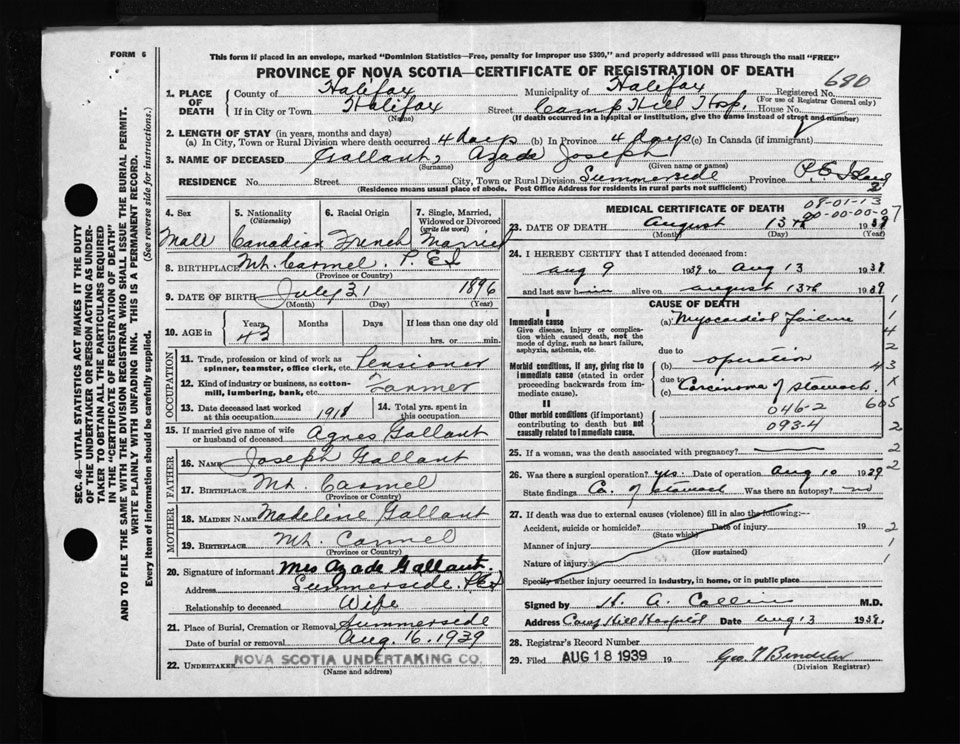 FORM 6
This form if placed in an envelope, marked "Dominion Statistics—Free, penalty for improper use $300," and properly addressed will pass through the mail "FREE"
PROVINCE OF NOVA SCOTIA—CERTIFICATE OF REGISTRATION OF DEATH
680
1. PLACE OF DEATH
County of Halifax Municipality of Halifax Registered No.
(For use of Registrar General only)
If in City or Town Halifax Street Camp Hill Hosp. House No.
(Name) (If death occurred in a hospital or institution, give the name instead of street and number)
2. LENGTH OF STAY (in years, months and days)
(a) In City, Town or Rural Division where death occurred 4 days (b) In Province 4 days (c) In Canada (if immigrant)
3. NAME OF DECEASED Gallant, Azade Joseph
(Surname) (Given name or names)
RESIDENCE No. Street City, Town or Rural Division Summerside Province P.E. Island
(Residence means usual place of abode. Post Office Address for residents in rural parts not sufficient)
2
4. Sex
Male
5. Nationality (Citizenship)
Canadian
6. Racial Origin
French
7. Single, Married, Widowed or Divorced (write the word)
Married
8. BIRTHPLACE Mt. Carmel. P.E.I
(Province or Country)
9. DATE OF BIRTH July 31 1896
(Month) (Day) (Year)
10. AGE in Years Months Days If less than one day old
43 hrs. or min.
OCCUPATION
11. Trade, profession or kind of work as spinner, teamster, office clerk, etc. Pensioner
12. Kind of industry or business, as cotton-mill, lumbering, bank, etc. Farmer
13. Date deceased last worked at this occupation 1918
14. Total yrs. spent in this occupation
15. If married give name of wife or husband of deceased Agnes Gallant
FATHER
16. NAME Joseph Gallant
17. BIRTHPLACE Mt. Carmel
(Province or Country)
MOTHER
18. MAIDEN NAME Madeline Gallant
19. BIRTHPLACE Mt. Carmel
(Province or Country)
20. Signature of informant Mrs Azade Gallant.
Address Summerside. P.E.I
Relationship to deceased Wife
21. Place of Burial, Cremation or Removal Summerside
Date of burial or removal Aug. 16. 1939
22. UNDERTAKER NOVA SCOTIA UNDERTAKING CO.
(Name and address)
MEDICAL CERTIFICATE OF DEATH
08-01-13
00-00-00-07
23. DATE OF DEATH August 13th 1939
(Month) (Day) (Year)
24. I HEREBY CERTIFY that I attended deceased from:
Aug 9 1939 to Aug 13 1939
and last saw him alive on August 13th 1939
CAUSE OF DEATH
I
Immediate cause
Give disease, injury or complication which caused death, not the mode of dying, such as heart failure, asphyxia, asthenia, etc.
(a) Myocardial failure
due to
Morbid conditions, if any, giving rise to immediate cause (stated in order proceeding backwards from immediate cause).
(b) operation
due to
(c) Carcinoma of stomach.
II
Other morbid conditions (if important) contributing to death but not causally related to immediate cause.
046-2
093-4
1
1
4
2
43
X
605
2
25. If a woman, was the death associated with pregnancy? 2
26. Was there a surgical operation? yes. Date of operation Aug 10 1939 2
State findings Ca. of stomach Was there an autopsy? no
27. If death was due to external causes (violence) fill in also the following:—
Accident, suicide or homicide? Date of injury 19 2
(State which)
Manner of injury 1
(How sustained)
Nature of injury 1
Specify whether injury occurred in industry, in home, or in public place
Signed by H. A. Collins M.D.
Address Camp Hill Hospital Date Aug 13 1939.
28. Registrar's Record Number
29. Filed AUG 18 1939 19 Geo. F
(Division Registrar)
SEC. 46—VITAL STATISTICS ACT MAKES IT THE DUTY
OF THE UNDERTAKER OR PERSON ACTING AS UNDER-
TAKER TO OBTAIN ALL THE PARTICULARS REQUIRED
IN THE "CERTIFICATE OF REGISTRATION OF DEATH"
AND TO FILE THE SAME WITH THE DIVISION REGISTRAR WHO SHALL ISSUE THE BURIAL PERMIT.
WRITE PLAINLY WITH UNFADING INK. THIS IS A PERMANENT RECORD.
Every item of information should be carefully supplied. (See reverse side for instructions.)